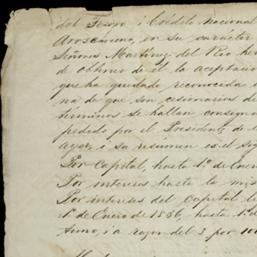 del Tesoro i Crédito Nacional
Aroscarena, en su carácter
Señores Martinez del Rio her
de obtener de él la aceptacio
que ha quedado reconocida i
na de que son cesionarios de
términos se hallan consigna
pedido por el Presidente de
ayer, i su resumen es el sig
Por Capital, hasta 1º de Ener
Por intereses hasta la mis
Por intereses del Capital li
1º de Enero de 1856, hasta 1º d
timo, i a razon del 3 por 100